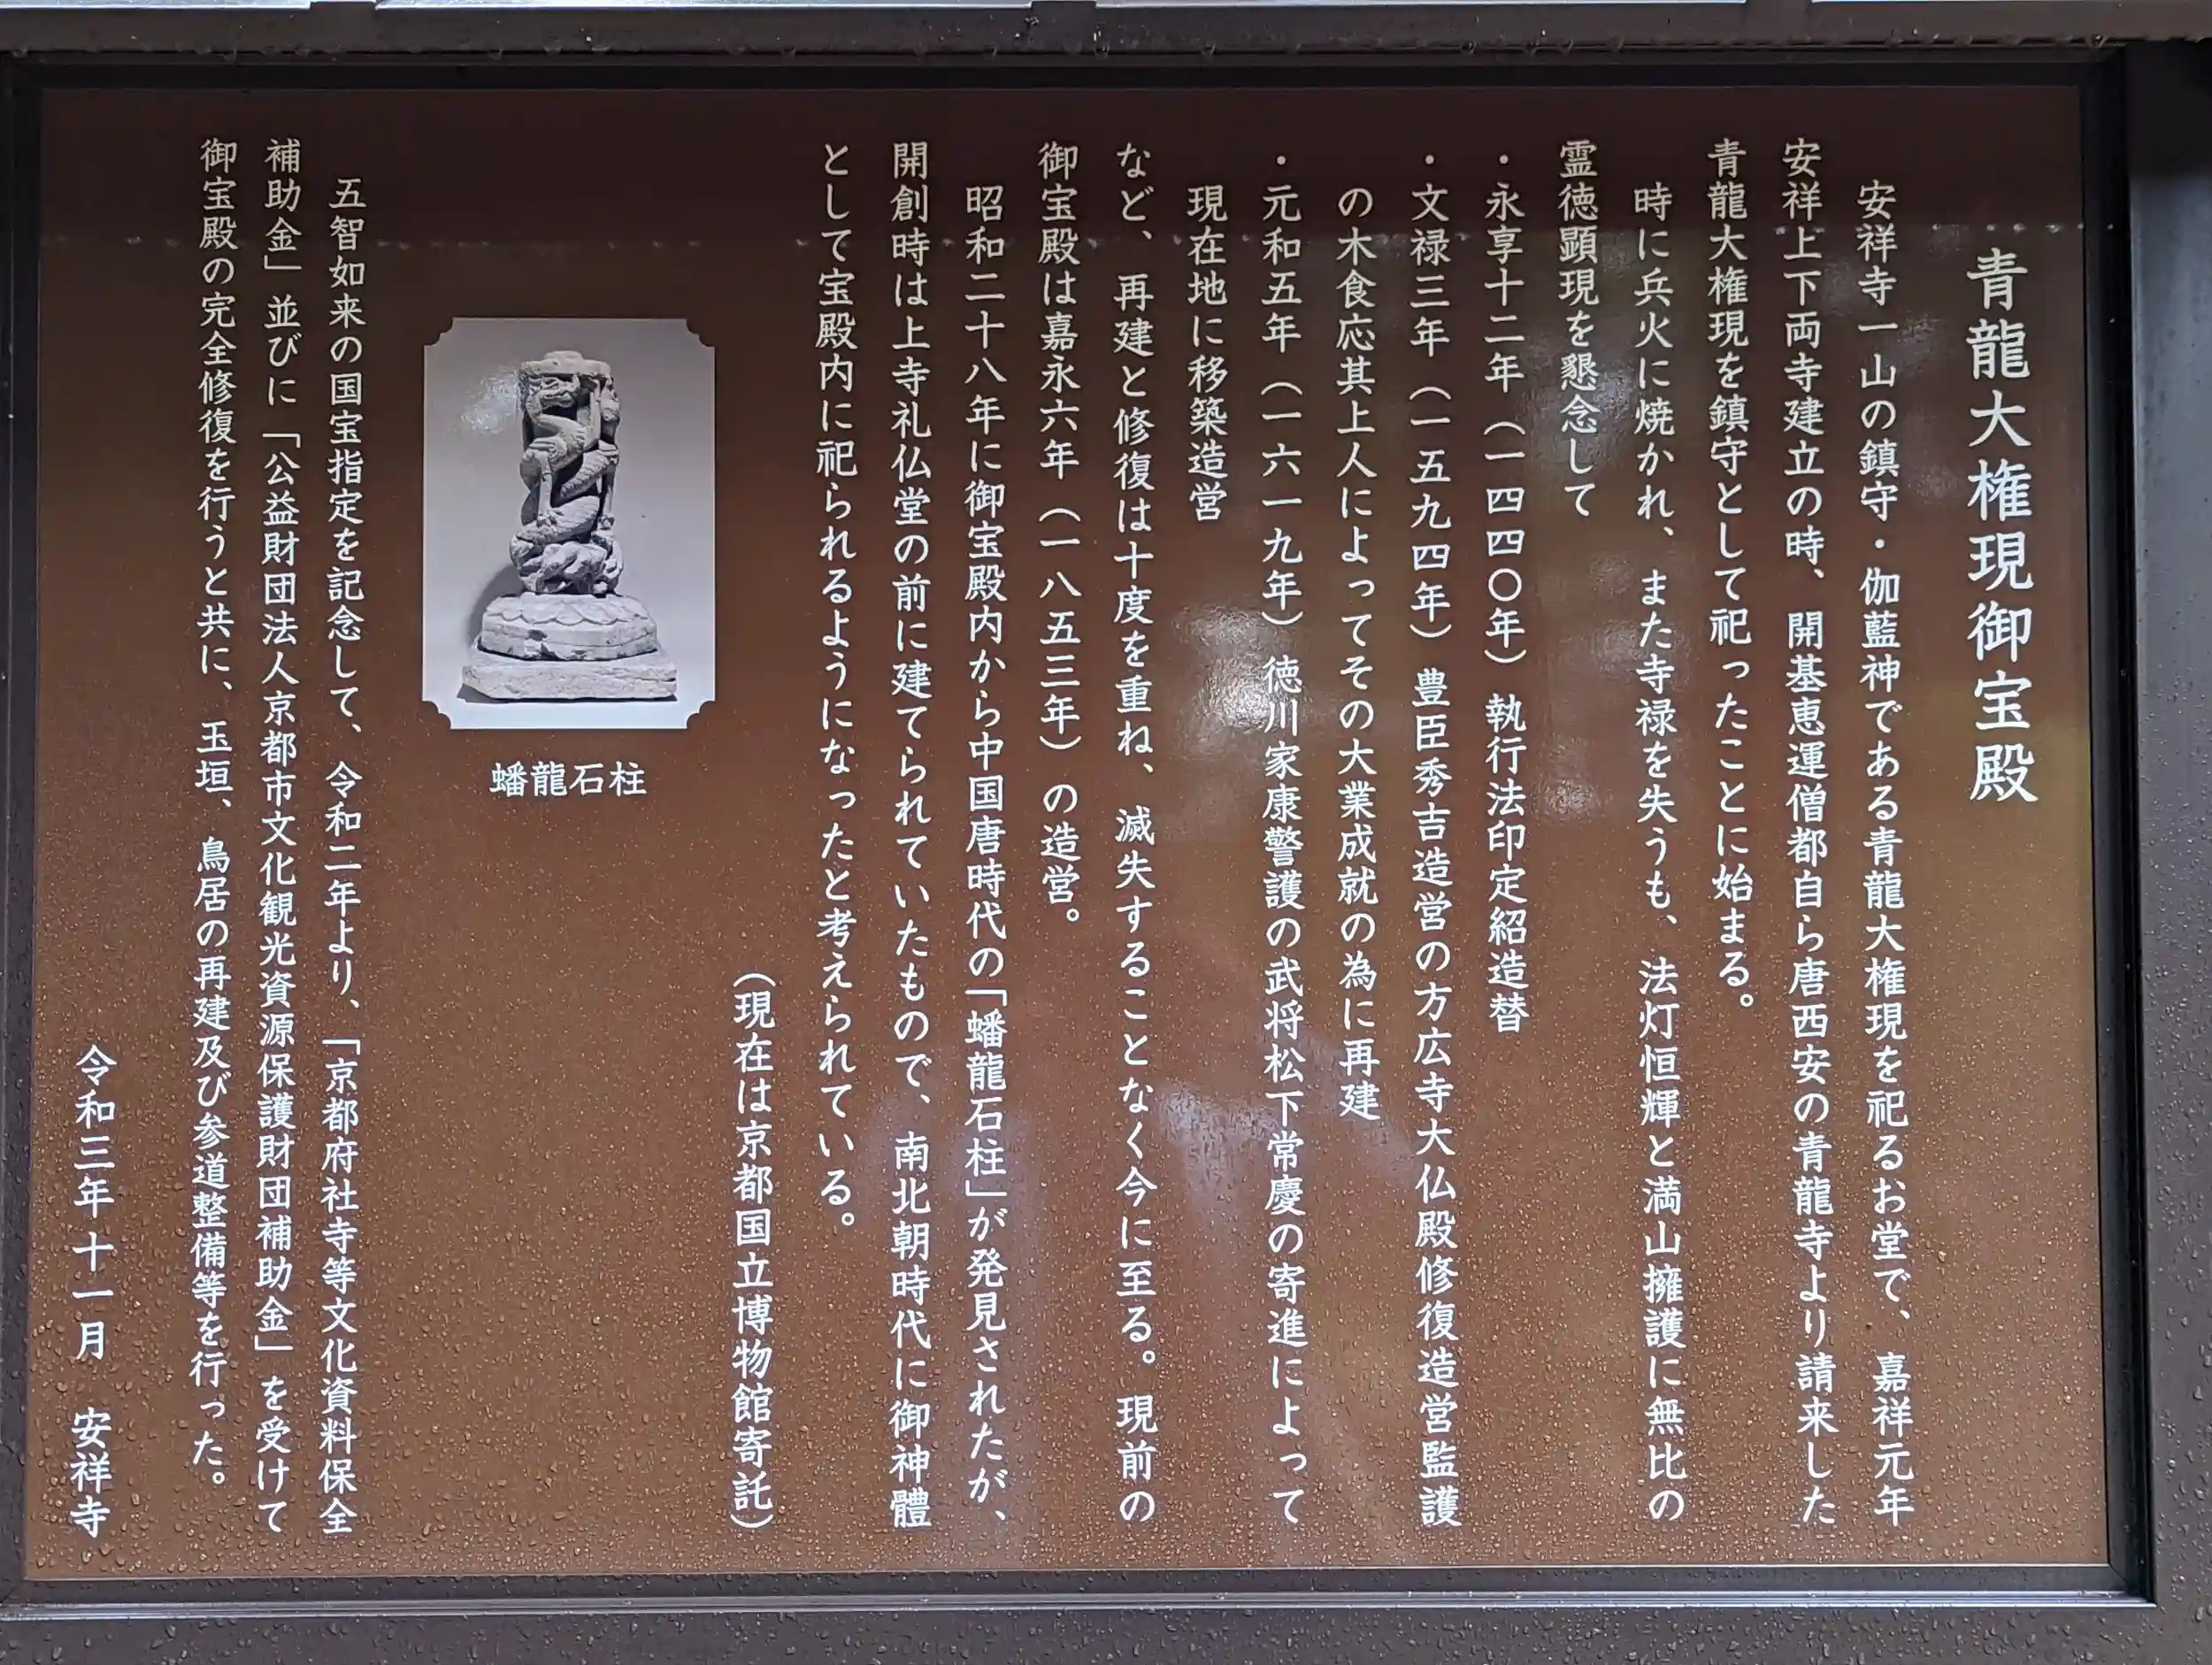 青龍大権現御宝殿
安祥寺一山の鎮守・伽藍神である青龍大権現を祀るお堂で、嘉祥元年
安祥上下両寺建立の時、開基恵運僧都自ら唐西安の青龍寺より請来した
青龍大権現を鎮守として祀ったことに始まる。
時に兵火に焼かれ、また寺禄を失うも、法灯恒輝と満山擁護に無比の
霊徳顕現を懇念して
・永享十二年（一四四〇年）執行法印定紹造替
・文禄三年（一五九四年）豊臣秀吉造営の方広寺大仏殿修復造営監護
の木食応其上人によってその大業成就の為に再建
・元和五年（一六一九年）徳川家康警護の武将松下常慶の寄進によって
現在地に移築造営
など、再建と修復は十度を重ね、滅失することなく今に至る。現前の
御宝殿は嘉永六年（一八五三年）の造営。
昭和二十八年に御宝殿内から中国唐時代の「蟠龍石柱」が発見されたが、
開創時は上寺礼仏堂の前に建てられていたもので、南北朝時代に御神體
として宝殿内に祀られるようになったと考えられている。
（現在は京都国立博物館寄託）
蟠龍石柱
五智如来の国宝指定を記念して、令和二年より、「京都府社寺等文化資料保全
補助金」並びに「公益財団法人京都市文化観光資源保護財団補助金」を受けて
御宝殿の完全修復を行うと共に、玉垣、鳥居の再建及び参道整備等を行った。
令和三年十一月　安祥寺